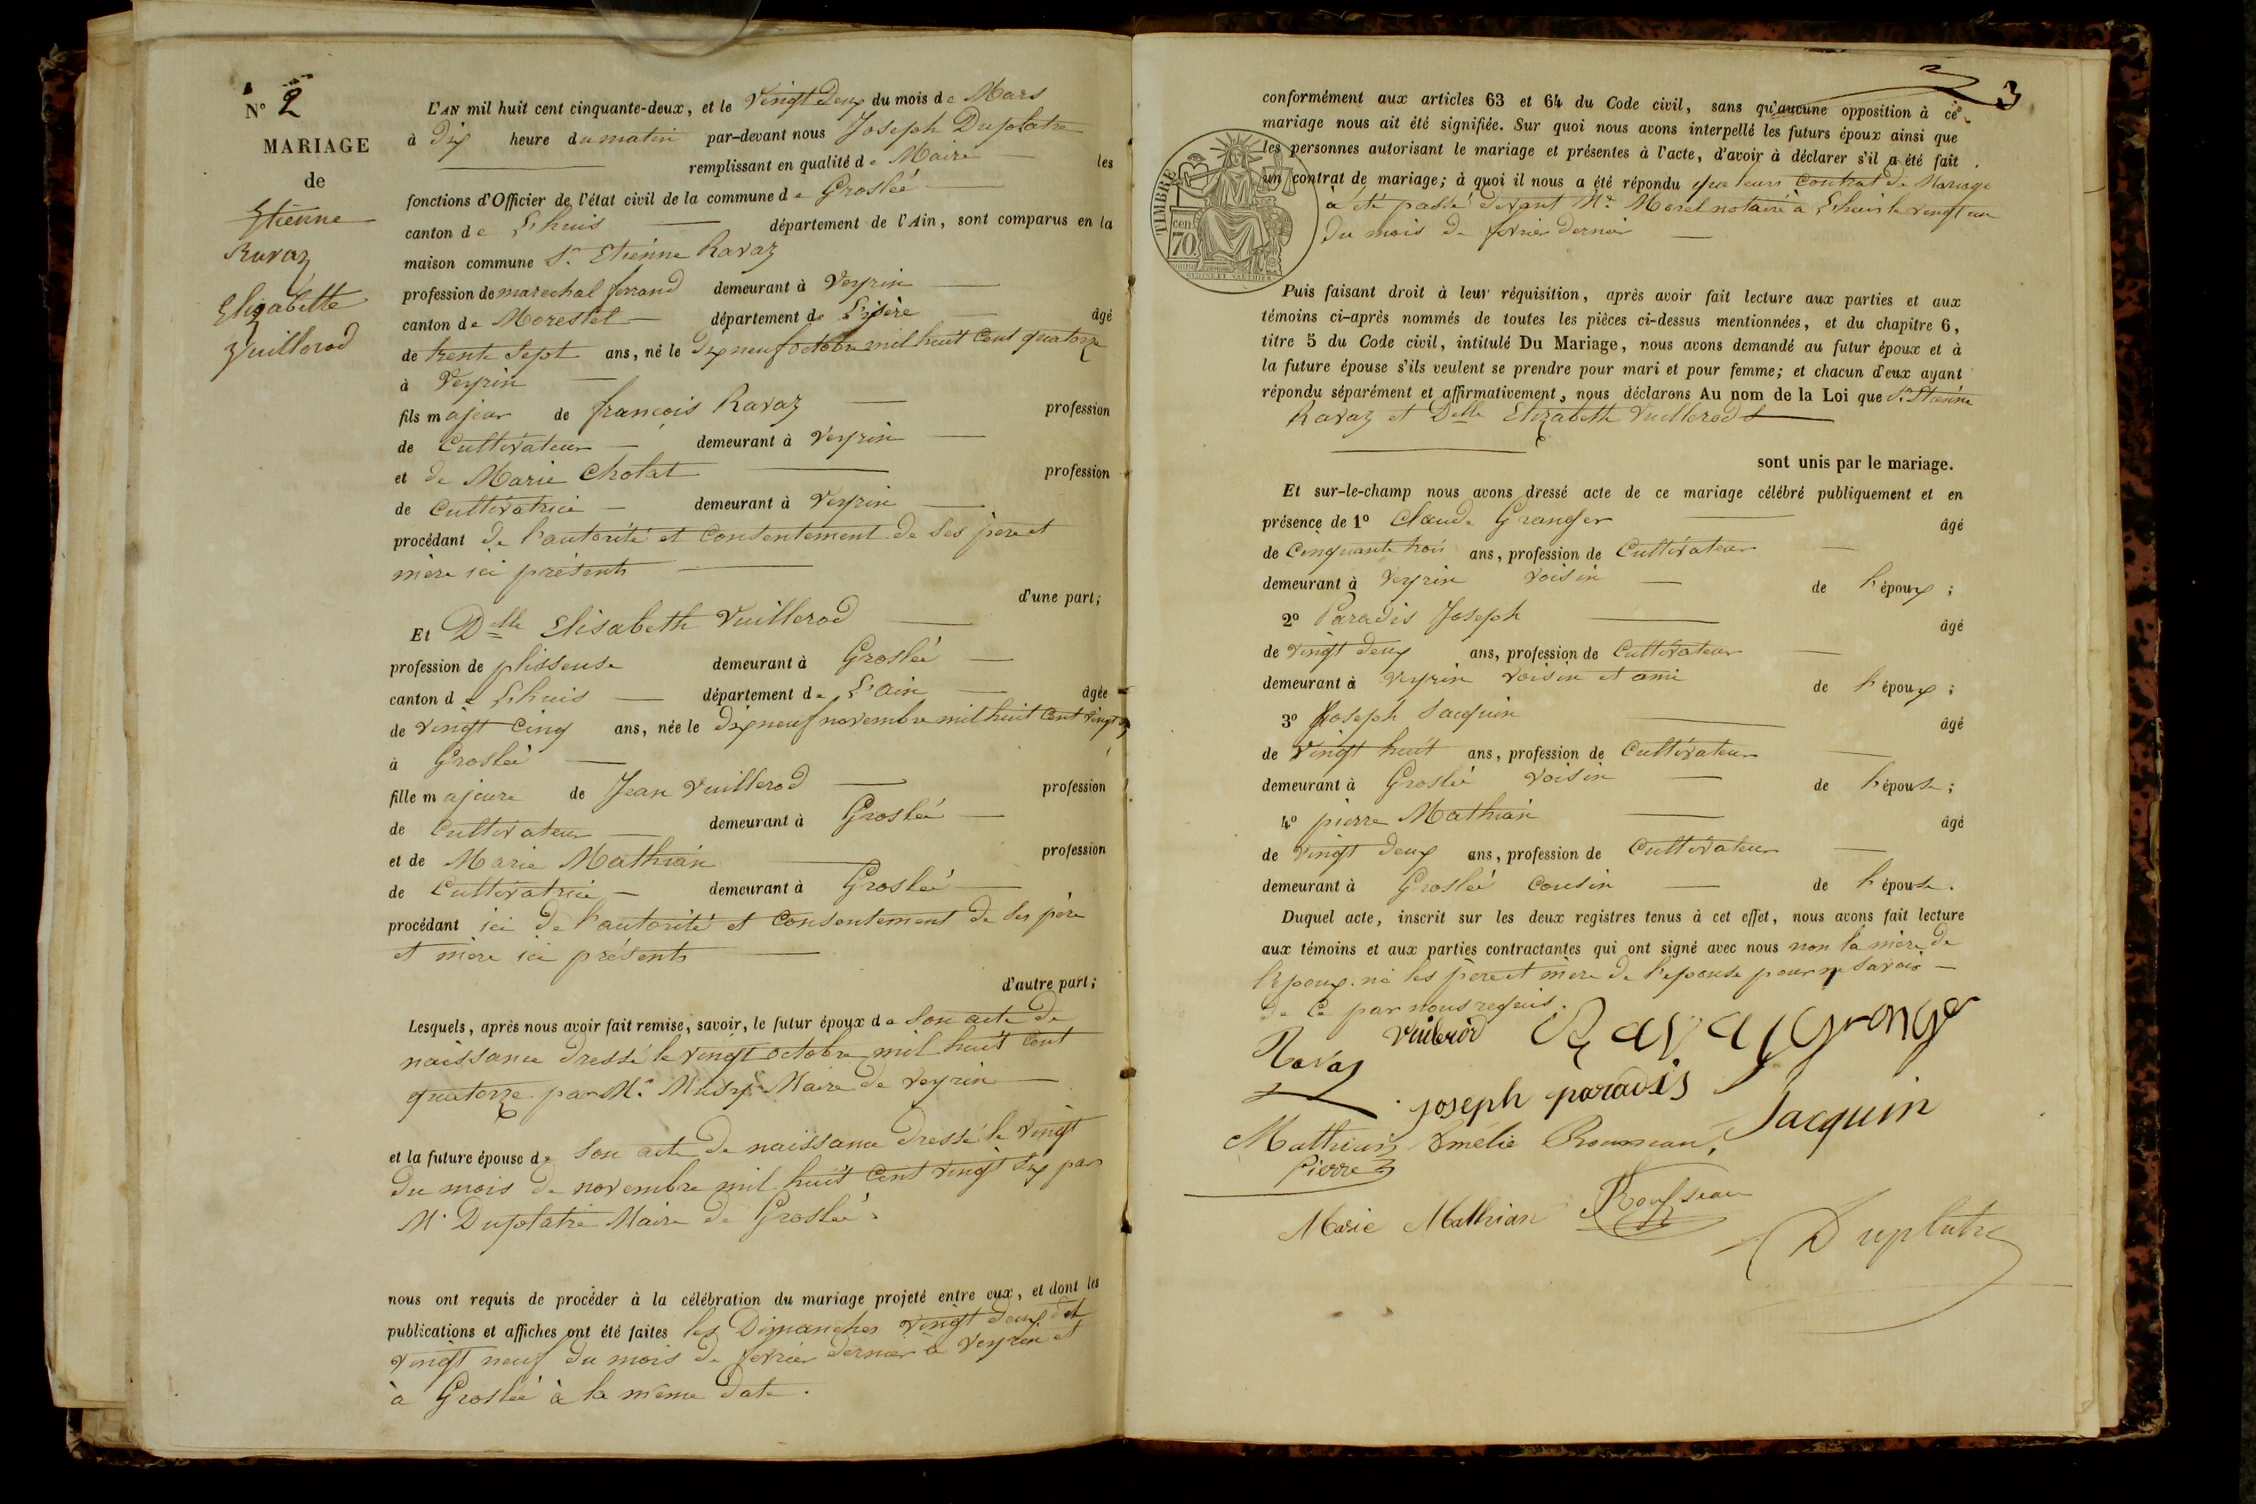 N° 2
MARIAGE
de
Etienne
Ravaz
Elizabette
Vuillerod
L'AN mil huit cent cinquante-deux, et le vingt deux du mois de Mars
à dix heure du matin par-devant nous Joseph Duplatre
remplissant en qualité de Maire les
fonctions d'Officier de l'état civil de la commune de Groslée
canton de Lhuis département de l'Ain, sont comparus en la
maison commune Sr. Etienne Ravaz
profession de marechal ferrand demeurant à Veyrin
canton de Morestel département de L'isère âgé
de trente sept ans, né le dix neuf octobre mil huit cent quatorze
à Veyrin
fils majeur de françois Ravaz profession
de Cultivateur demeurant à Veyrin
et de Marie Cholat profession
de Cultivatrice demeurant à Veyrin
procédant de l'autorité et consentement de ses père et
mère ici présents
d'une part;
Et Delle Elisabeth Vuillerod
profession de plisseuse demeurant à Groslée
canton de Lhuis département de L'ain âgée
de vingt cinq ans, née le dix neuf novembre mil huit cent vingt six
à Groslée
fille majeure de Jean Vuillerod profession
de Cultivateur demeurant à Groslée
et de Marie Mathian profession
de Cultivatrice demeurant à Groslée
procédant ici de l'autorité et consentement de ses père
et mère ici présents
d'autre part;
Lesquels, après nous avoir fait remise, savoir, le futur époux de son acte de
naissance dressé le vingt octobre mil huit cent
quatorze par Mr. Maire de Veyrin
et la future épouse de son acte de naissance dressé le vingt
du mois de novembre mil huit cent vingt six par
Mr Duplatre Maire de Groslée.
nous ont requis de procéder à la célébration du mariage projeté entre eux, et dont les
publications et affiches ont été faites les Dimanches vingt deux et
vingt neuf du mois de fevrier dernier à Veyrin et
à Groslée à la même date.
3
conformément aux articles 63 et 64 du Code civil, sans qu'aucune opposition à ce
mariage nous ait été signifiée. Sur quoi nous avons interpellé les futurs époux ainsi que
les personnes autorisant le mariage et présentes à l'acte, d'avoir à déclarer s'il a été fait
un contrat de mariage; à quoi il nous a été répondu que leur contrat de Mariage
à été passé devant Me Morel notaire à Lhuis le vingt un
du mois de fevrier dernier
TIMBRE
70
Puis faisant droit à leur réquisition, après avoir fait lecture aux parties et aux
témoins ci-après nommés de toutes les pièces ci-dessus mentionnées, et du chapitre 6,
titre 5 du Code civil, intitulé Du Mariage, nous avons demandé au futur époux et à
la future épouse s'ils veulent se prendre pour mari et pour femme; et chacun d'eux ayant
répondu séparément et affirmativement, nous déclarons Au nom de la Loi que Sr. Etienne
Ravaz et Delle Elizabeth Vuillerod
sont unis par le mariage.
Et sur-le-champ nous avons dressé acte de ce mariage célébré publiquement et en
présence de 1° Claude Granger âgé
de Cinquante trois ans, profession de Cultivateur
demeurant à Veyrin voisin de l'époux;
2° Paradis Joseph âgé
de vingt deux ans, profession de Cultivateur
demeurant à Veyrin voisin et ami de l'époux;
3° Joseph Jacquin âgé
de vingt huit ans, profession de Cultivateur
demeurant à Groslée voisin de l'épouse;
4° pierre Mathian âgé
de vingt deux ans, profession de Cultivateur
demeurant à Groslée cousin de l'épouse.
Duquel acte, inscrit sur les deux registres tenus à cet effet, nous avons fait lecture
aux témoins et aux parties contractantes qui ont signé avec nous non la mère de
l'Epoux ni les père et mère de l'epouse pour ne savoir
de ce par nous requis.
Ravaz Vuilerod Ravaz Grange
joseph paradis Jacquin
Mathian Pierre Amélie Rousseau
Marie Mathian Rousseau
Duplatre